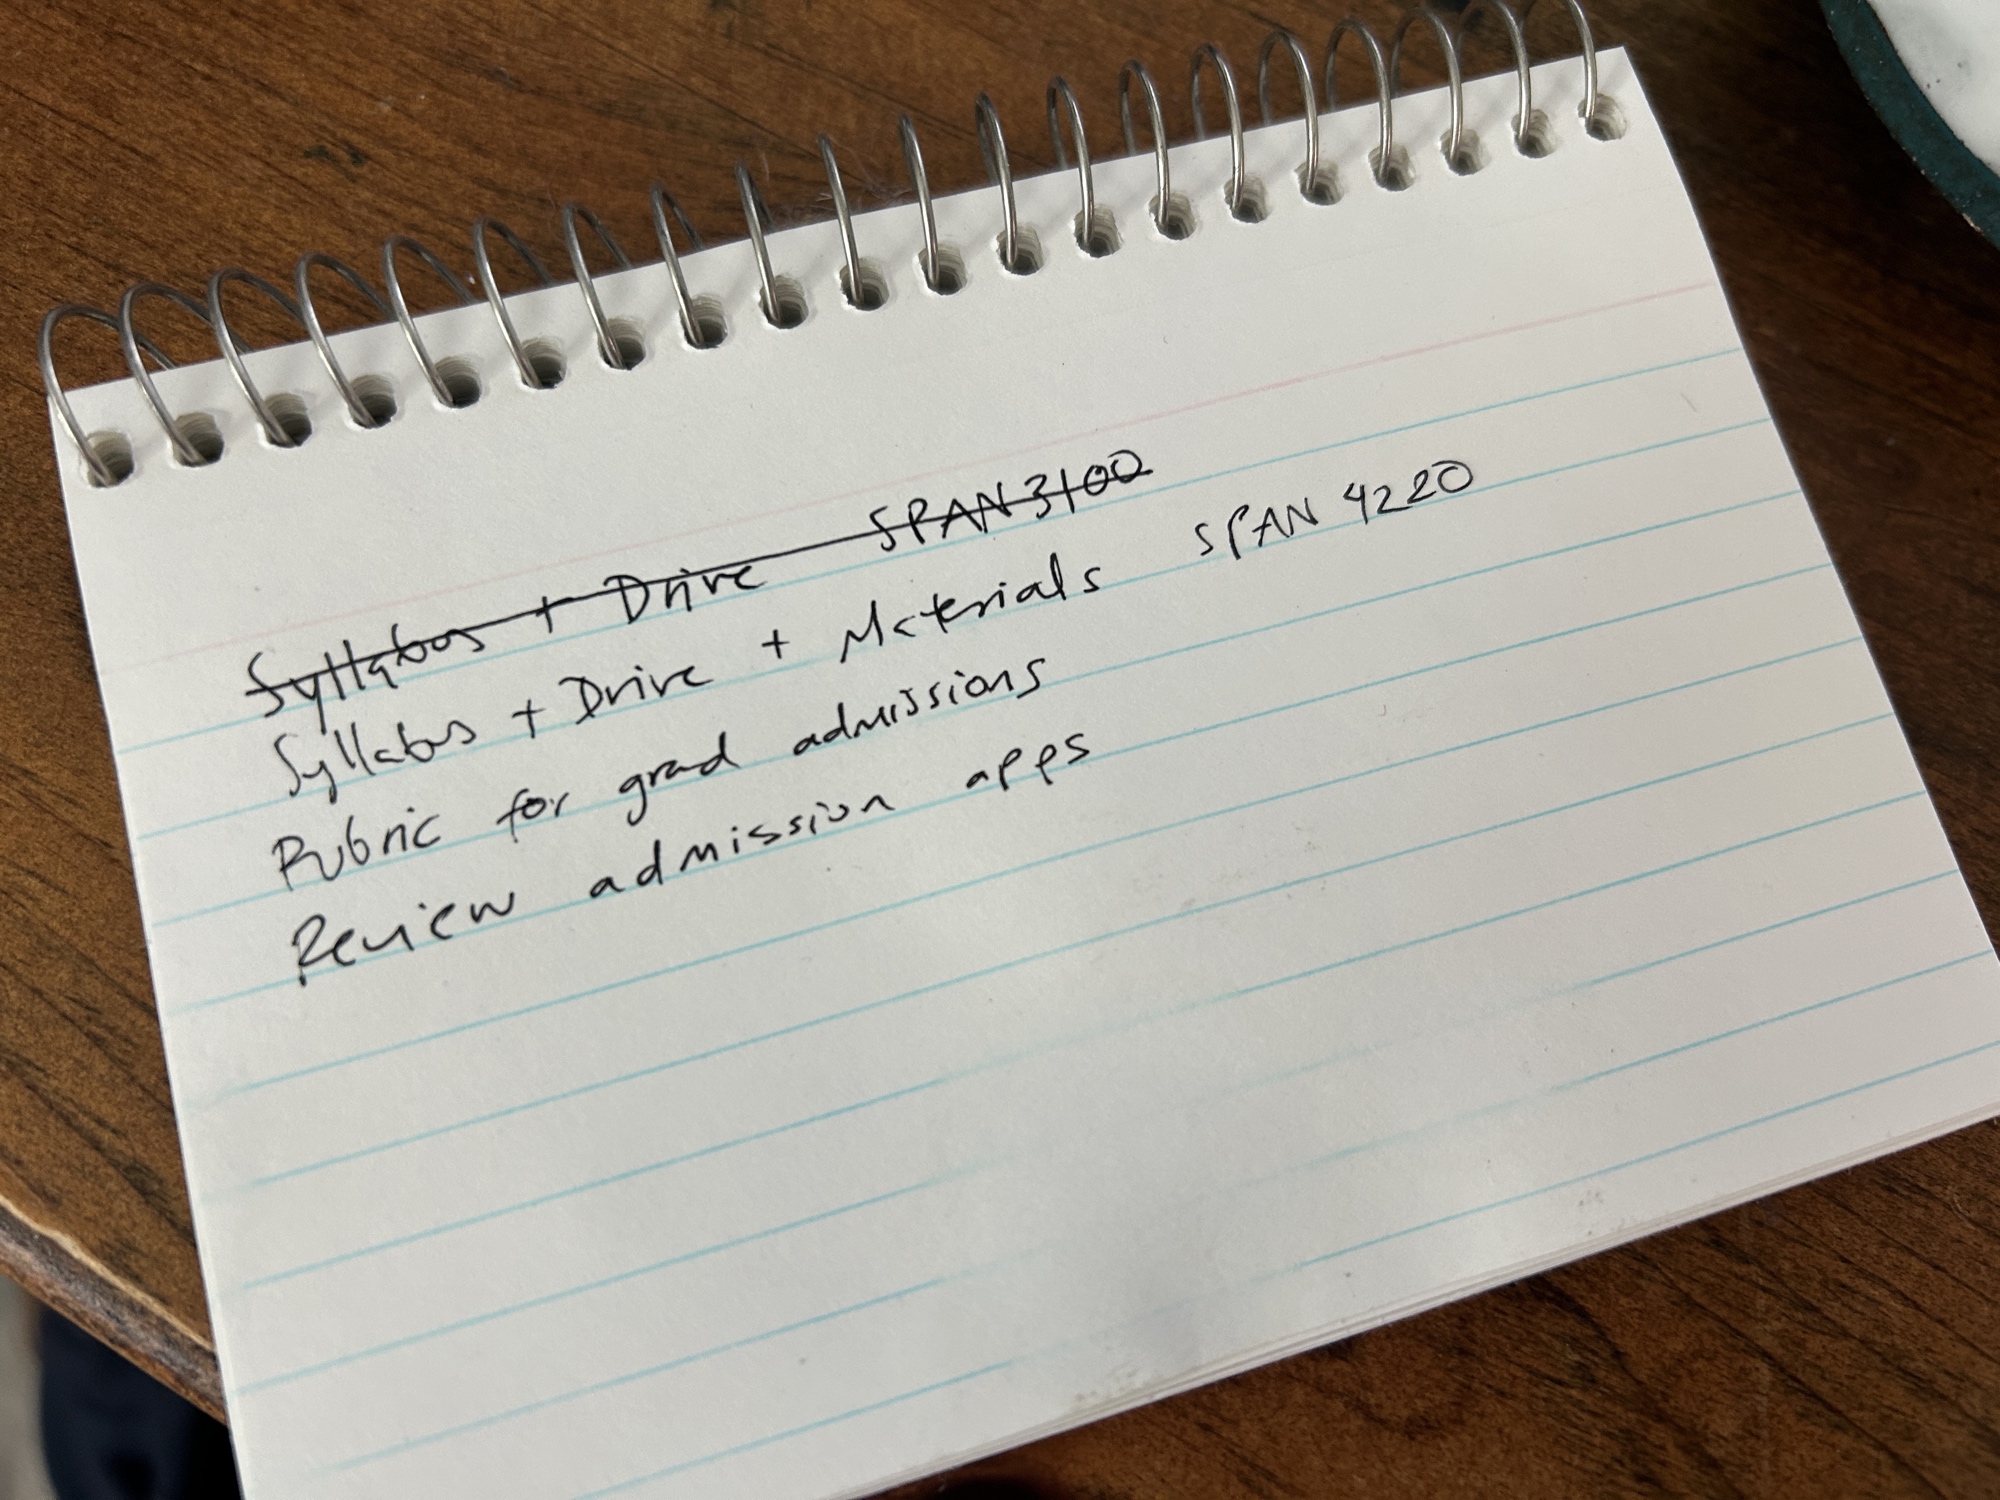 Syllabus + Drive SPAN 3100
Syllabus + Drive + Materials SPAN 4220
Rubric for grad admissions
Review admission apps